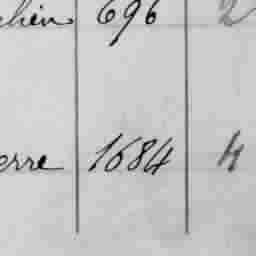 696 2
erre 1684 4